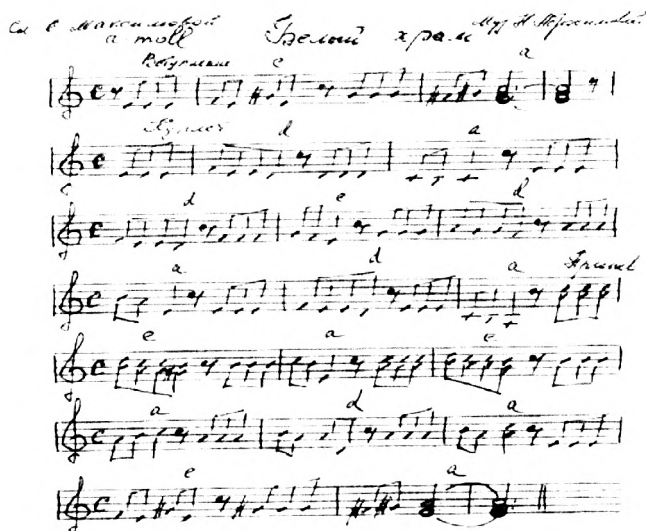 Сл В Максимовой Белый храм Муз Н
a moll
Вступление e a
Куплет d a
d e d
a d a Припев
e a e
a d a
e a